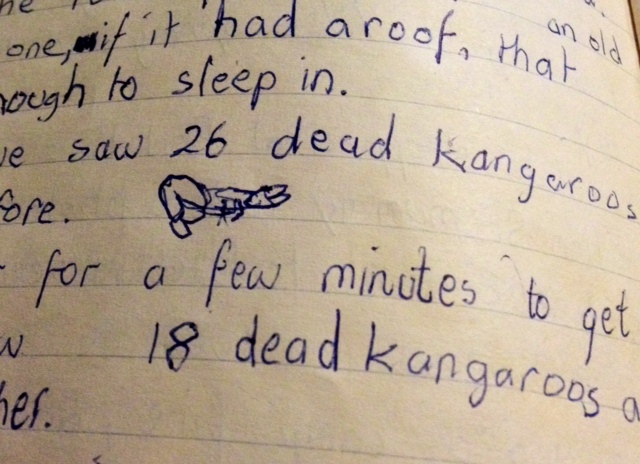 an old
one, if it had aroof, that
nough to sleep in.
ve saw 26 dead kangaroos
fore.
for a few minutes to get
w 18 dead kangaroos a
her.